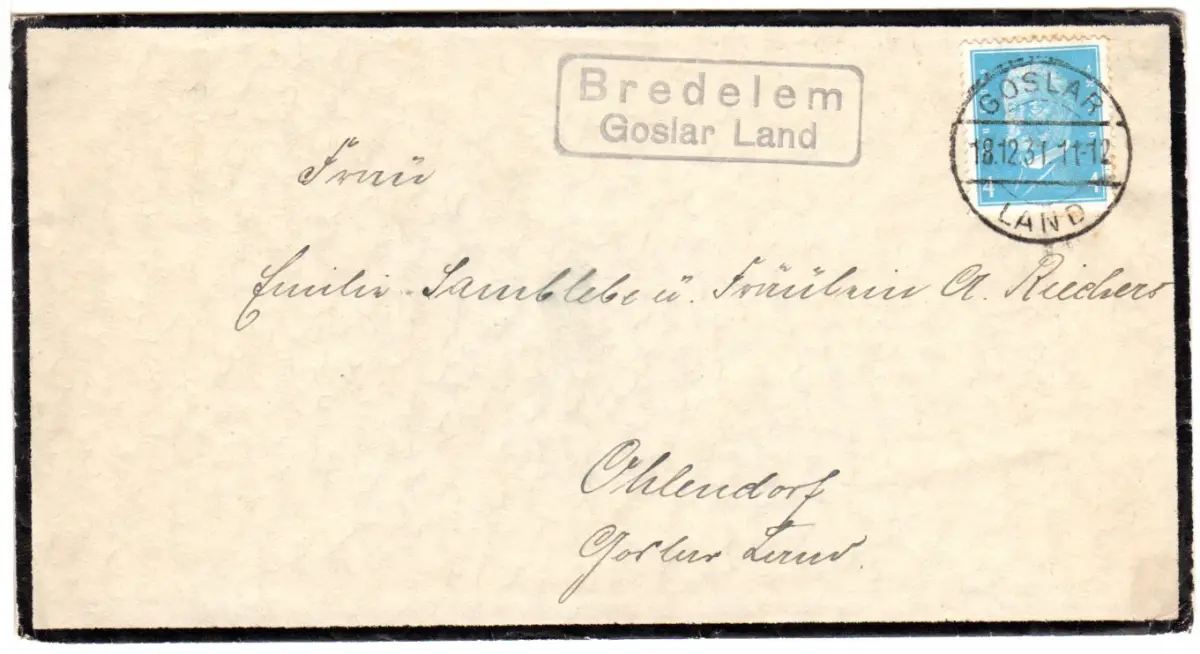 Bredelem
Goslar Land
GOSLAR
18.12.31 11-12
LAND
4 4
Frau
Emilie Samblebe u. Fräulein A. Riechers
Ohlendorf
Goslar Land.